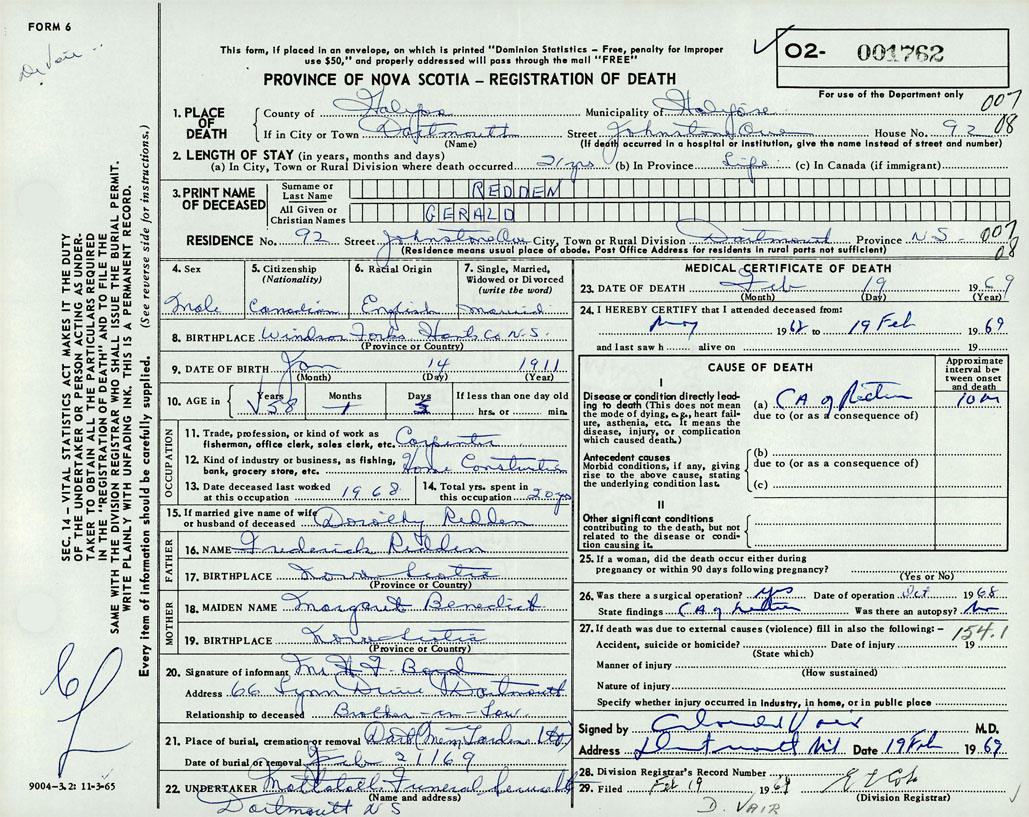 FORM 6
D. Vair
This form, if placed in an envelope, on which is printed "Dominion Statistics – Free, penalty for improper
use $50," and properly addressed will pass through the mail "FREE"
PROVINCE OF NOVA SCOTIA – REGISTRATION OF DEATH
02- 001762
For use of the Department only
007
08
1. PLACE OF DEATH County of Halifax Municipality of
If in City or Town Dartmouth Street Johnstone Ave House No. 92
(Name) (If death occurred in a hospital or institution, give the name instead of street and number)
2. LENGTH OF STAY (in years, months and days)
(a) In City, Town or Rural Division where death occurred 21 yrs (b) In Province Life (c) In Canada (if immigrant)
3. PRINT NAME OF DECEASED
Surname or Last Name REDDEN
All Given or Christian Names GERALD
RESIDENCE No. 92 Street Johnstone Ave City, Town or Rural Division Dartmouth Province N.S. 007
(Residence means usual place of abode. Post Office Address for residents in rural parts not sufficient) 08
4. Sex Male
5. Citizenship (Nationality) Canadian
6. Racial Origin English
7. Single, Married, Widowed or Divorced (write the word) Married
8. BIRTHPLACE Windsor Forks Hants Co N.S.
(Province or Country)
9. DATE OF BIRTH Jan 14 1911
(Month) (Day) (Year)
10. AGE in Years 58 Months 1 Days 5 If less than one day old
hrs. or min.
OCCUPATION
11. Trade, profession, or kind of work as fisherman, office clerk, sales clerk, etc. Carpenter
12. Kind of industry or business, as fishing, bank, grocery store, etc. Home Construction
13. Date deceased last worked at this occupation 1968
14. Total yrs. spent in this occupation 20 yrs
15. If married give name of wife or husband of deceased Dorothy Redden
FATHER
16. NAME Frederick Redden
17. BIRTHPLACE Nova Scotia
(Province or Country)
MOTHER
18. MAIDEN NAME Margaret Benedict
19. BIRTHPLACE Nova Scotia
(Province or Country)
20. Signature of informant
Address 66 Lynn Drive Dartmouth
Relationship to deceased Brother-in-Law
21. Place of burial, cremation or removal Dart Mem Gardens Ltd
Date of burial or removal Feb 21/69
22. UNDERTAKER Mattatall Funeral
(Name and address)
Dartmouth N S
MEDICAL CERTIFICATE OF DEATH
23. DATE OF DEATH Feb 19 1969
(Month) (Day) (Year)
24. I HEREBY CERTIFY that I attended deceased from:
May 1968 to 19 Feb 1969
and last saw h alive on 19
CAUSE OF DEATH
Approximate interval between onset and death
I
Disease or condition directly leading to death (This does not mean the mode of dying, e.g., heart failure, asthenia, etc. It means the disease, injury, or complication which caused death.)
(a) CA of Rectum 10 m
due to (or as a consequence of)
Antecedent causes
Morbid conditions, if any, giving rise to the above cause, stating the underlying condition last.
(b)
due to (or as a consequence of)
(c)
II
Other significant conditions
contributing to the death, but not related to the disease or condition causing it.
25. If a woman, did the death occur either during pregnancy or within 90 days following pregnancy?
(Yes or No)
26. Was there a surgical operation? yes Date of operation Oct 1968
State findings CA of rectum Was there an autopsy? No
27. If death was due to external causes (violence) fill in also the following: – 154.1
Accident, suicide or homicide? Date of injury 19
(State which)
Manner of injury
(How sustained)
Nature of injury
Specify whether injury occurred in industry, in home, or in public place
Signed by M.D.
Address Dartmouth Date 19 Feb 1969
28. Division Registrar's Record Number
29. Filed Feb 19 1969
(Division Registrar)
D. VAIR
SEC. 14 – VITAL STATISTICS ACT MAKES IT THE DUTY
OF THE UNDERTAKER OR PERSON ACTING AS UNDER-
TAKER TO OBTAIN ALL THE PARTICULARS REQUIRED
IN THE "REGISTRATION OF DEATH" AND TO FILE THE
SAME WITH THE DIVISION REGISTRAR WHO SHALL ISSUE THE BURIAL PERMIT.
WRITE PLAINLY WITH UNFADING INK. THIS IS A PERMANENT RECORD.
Every item of information should be carefully supplied. (See reverse side for instructions.)
9004-3.2: 11-3-65